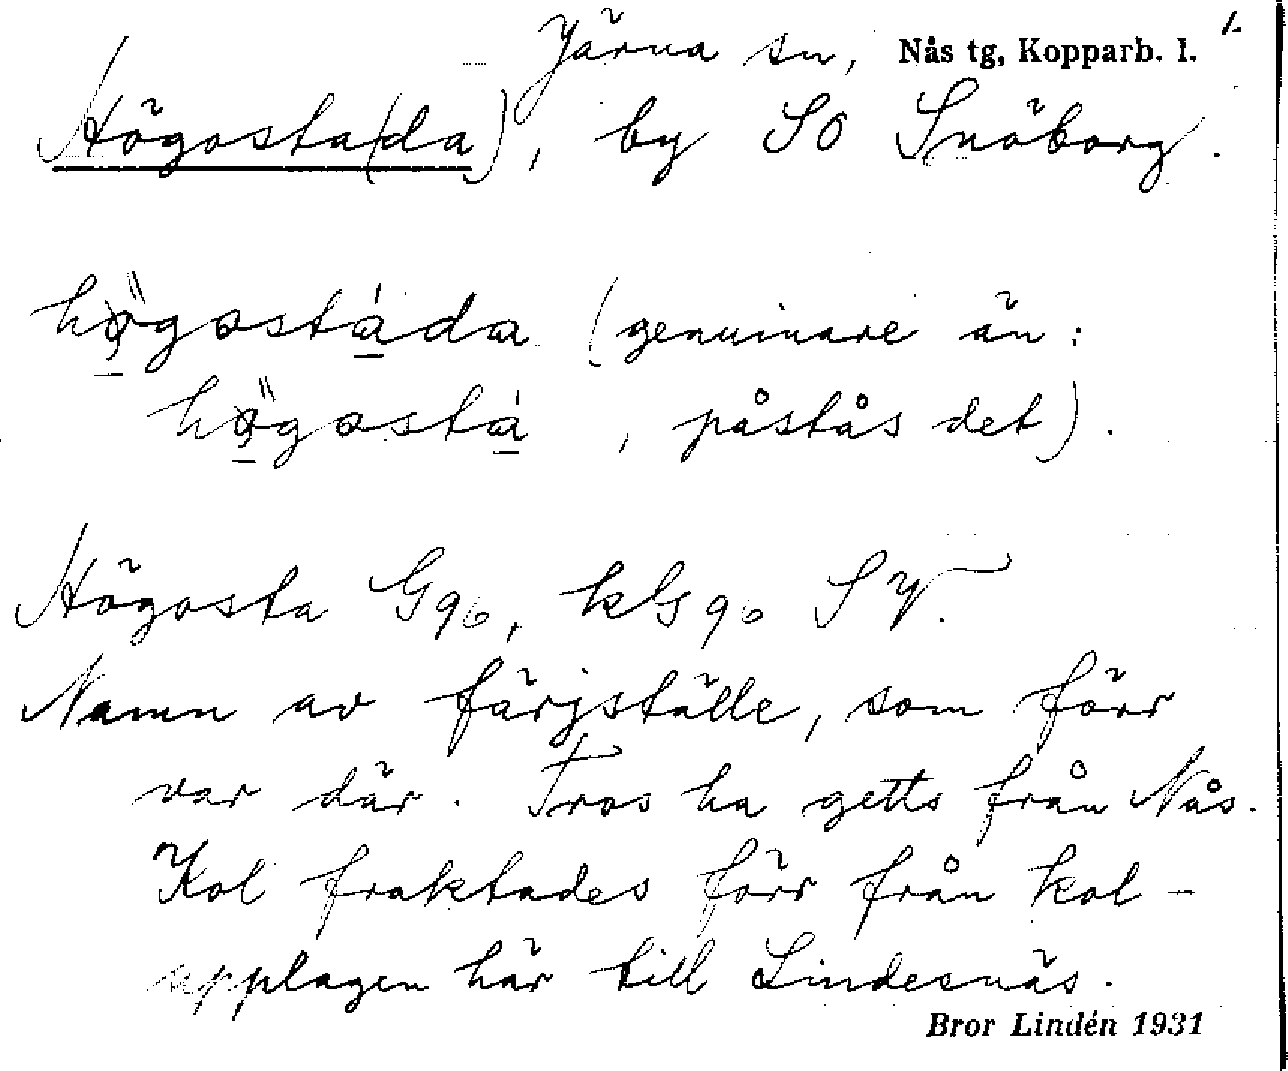 Järna sn, Nås tg, Kopparb. l. 1.
Högosta(da), by SO Snöborg.
högostáda (genuinare än:
högostá, påstås det).
Högosta G 96, kG 90 SV.
Namn av färjställe, som förr
var där. Tros ha getts från Nås.
Kol fraktades förr från kol-
upplagen här till Lindesnäs.
Bror Lindén 1931